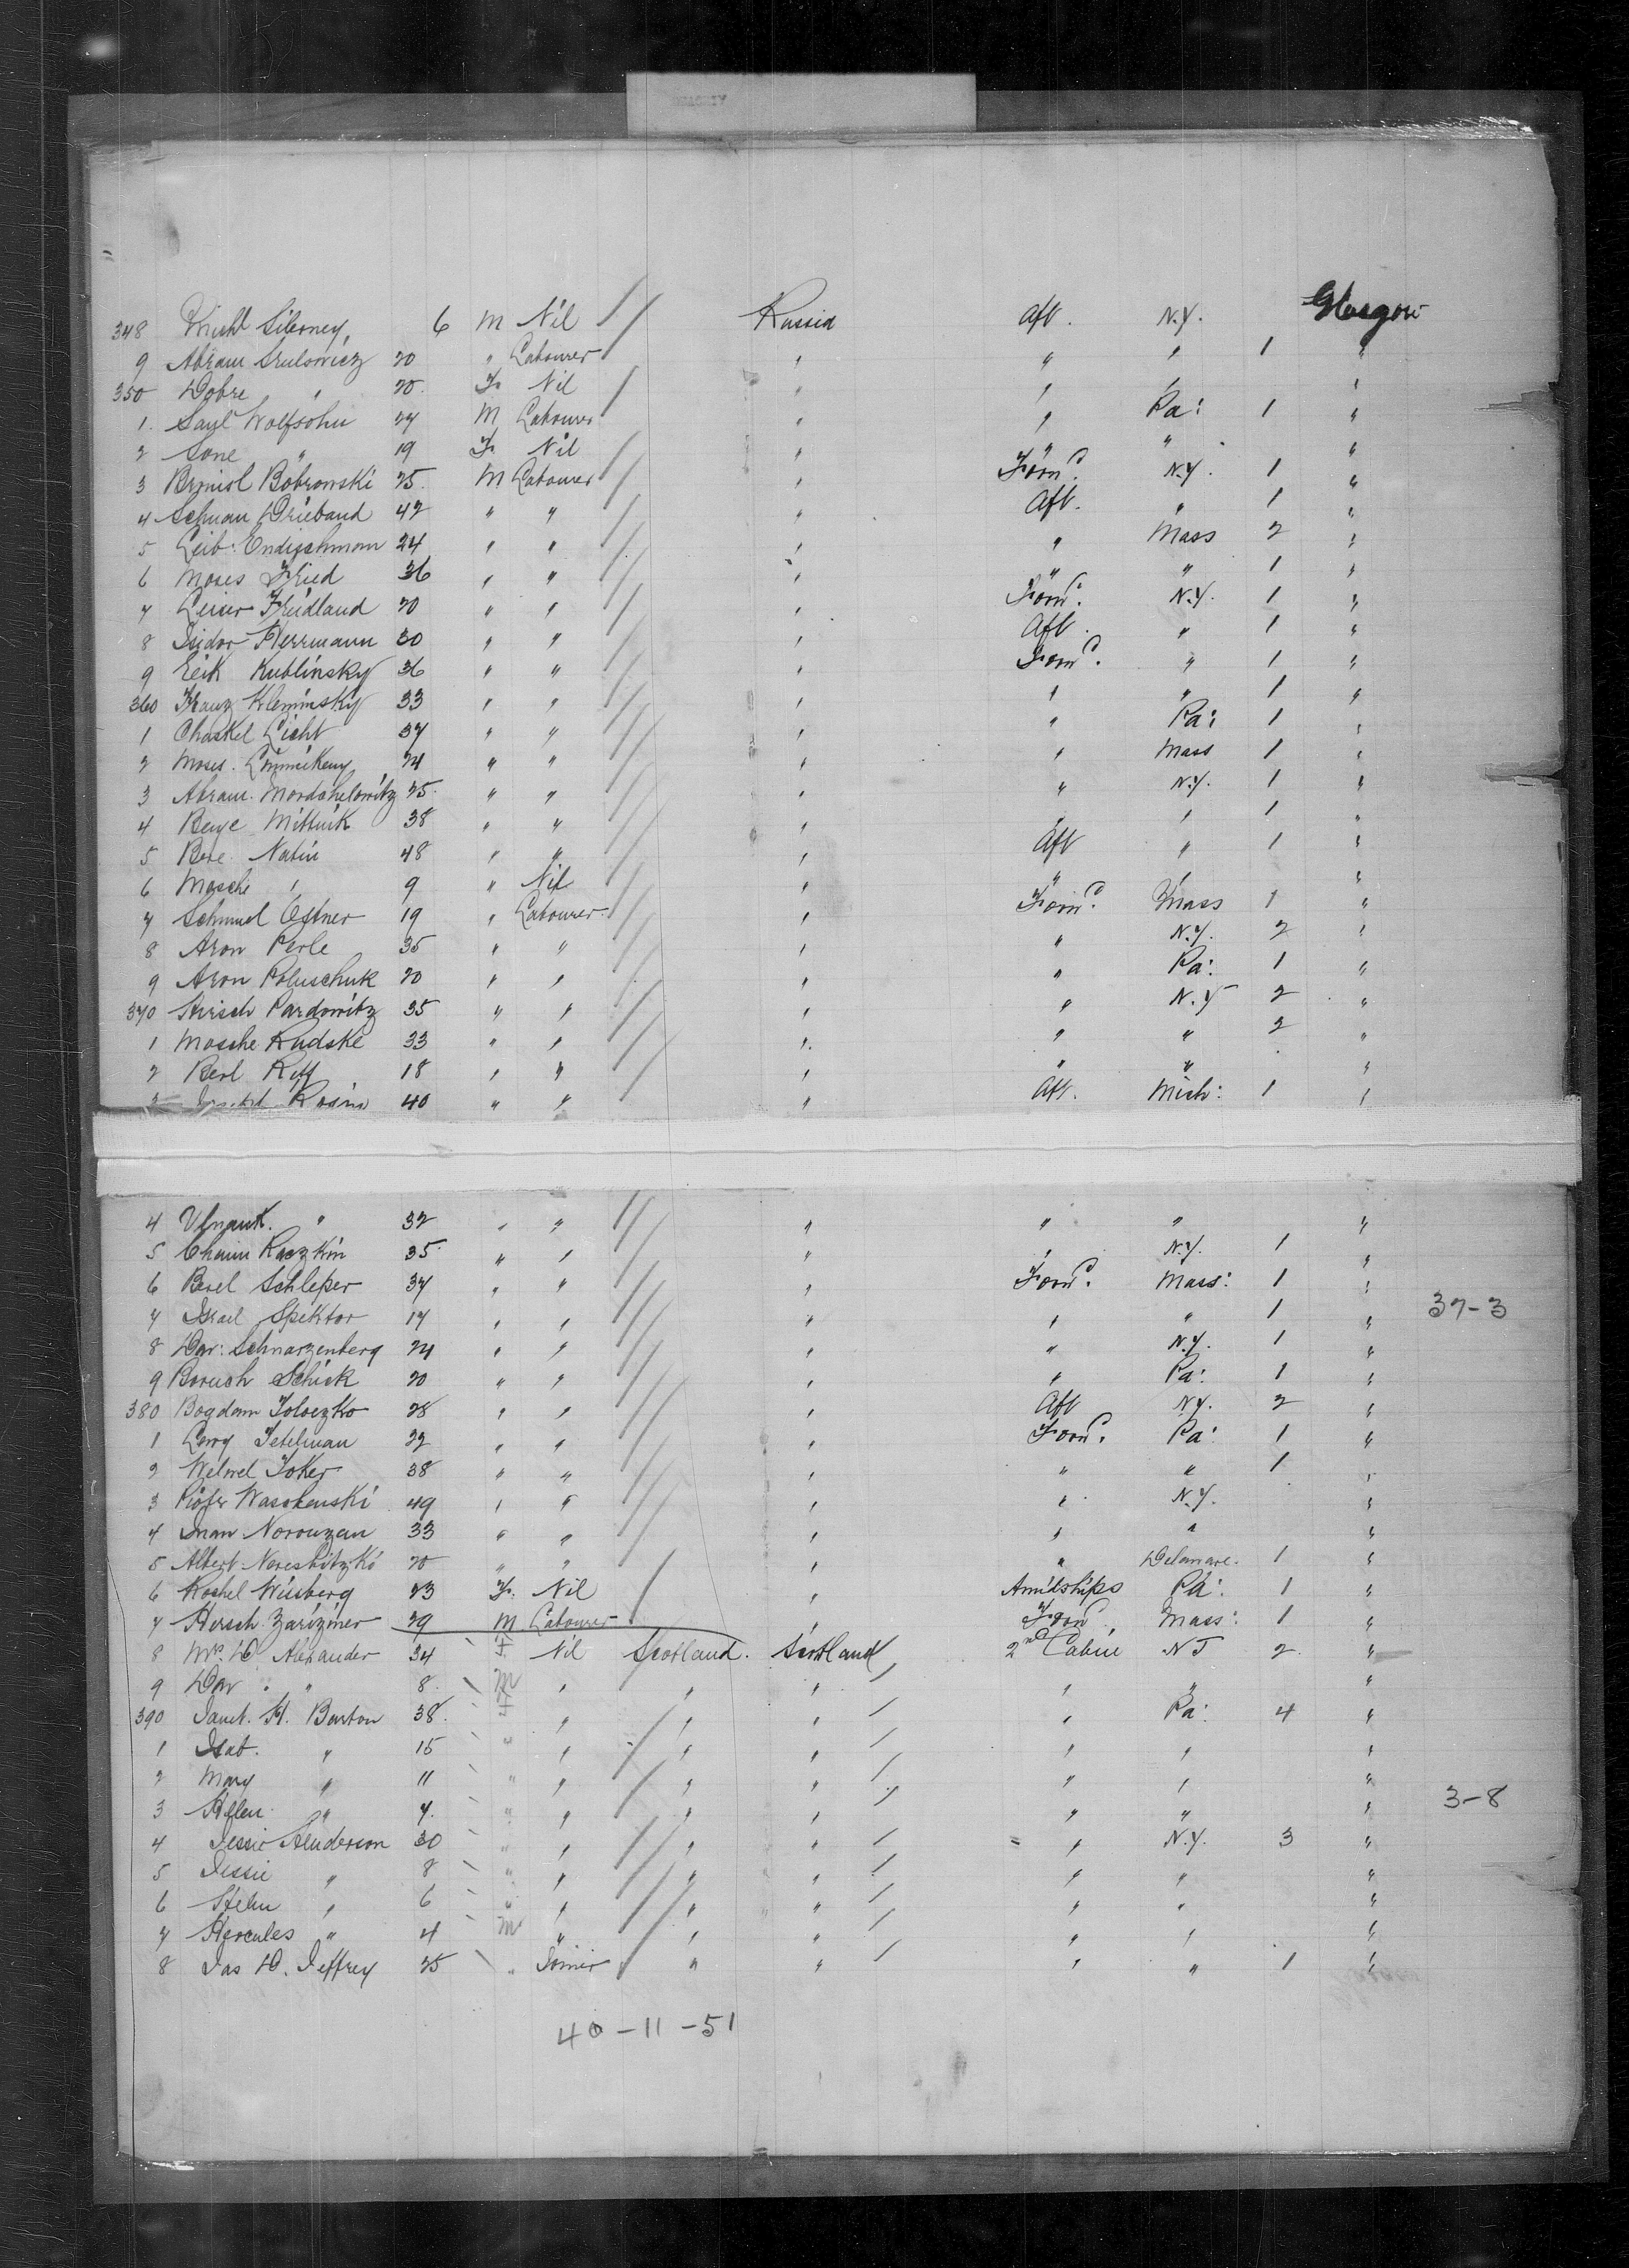 348 Siberney 6 M Nil Russia Aft. N.Y. Glasgow
9 Abram Srulowicz 20 " Labourer " " " 1 "
350 Dobre " 20. F. Nil " " " "
1. Saul Wolfsohn 27 M Labourer " " Pa: 1 "
2 Sone " 19 F. Nil " " " "
3 Bobrowski 25. M Labourer " Forwd. N.Y. 1 "
4 42 " " " Aft. " 1 "
5 Leib: Endischmann 24 " " " " Mass 2 "
6 Moses Fried 36 " " " " " 1 "
7 Leiser Friedland 20 " " " Forwd. N.Y. 1 "
8 Isidor Herrmann 30 " " " Aft. " 1 "
9 Kublinsky 36 " " " Forwd. " 1 "
360 Franz Kleminsky 33 " " " " " 1 "
1 Chaskel Licht 37 " " " " Pa: 1 "
2 Moses. 24 " " " " Mass 1 "
3 Abram. Mordchelowitz 25. " " " " N.Y. 1 "
4 Mittnik 38 " " " " " 1 "
5 Bere Natin 48 " " " Aft " 1 "
6 Mosche " 9 " Nil " " " "
7 Schmuel Ostner 19 " Labourer " Forwd. Mass 1 "
8 Aron Perle 35 " " " " N.Y. 2 "
9 Aron Poluschuk 20 " " " " Pa: 1 "
370 Hirsch Pardowitz 35 " " " " N.Y 2 "
1 Mosche Rudske 33 " " " " " 2 "
2 Berl Riff 18 " " " " " "
3 Rosin 40 " " " Aft. Mich: 1 "
4 " 32 " " " " " "
5 Chaim Raczkin 35. " " " " N.Y. 1 "
6 Berel Schleper 37 " " " Forwd. Mass: 1 "
7 Israel Spektor 17 " " " " " 1 " 37-3
8 Dav: Schwarzenberg 24 " " " " N.Y. 1 "
9 Boruch Schick 20 " " " " Pa: 1 "
380 Bogdan Toloczko 28 " " " Aft N.Y. 2 "
1 Tetelman 22 " " " Forwd. Pa: 1 "
2 Welwel Toker 38 " " " " " 1 "
3 Piotr Waschenski 49 " " " " N.Y. "
4 33 " " " " " "
5 Albert 20 " " " " Delaware. 1 "
6 Weisberg 23 F. Nil " Amidships Pa: 1 "
7 Hersch Zarizmer 29 M Labourer " Forwd Mass: 1 "
8 Mrs. D Alexander 34 F. Nil Scotland. Scotland 2nd Cabin NJ 2 "
9 Dav " 8. M " " " " " "
390 Janet. H. Barton 38. F " " " " Pa: 4 "
1 Isab. " 15 " " " " " " "
2 Mary " 11 " " " " " " "
3 Helen " 7. " " " " " " " 3-8
4 Jessie Henderson 30 " " " " " N.Y. 3 "
5 Jessie " 8 " " " " " " "
6 Helen " 6 " " " " " " "
7 Hercules " 4 M " " " " " "
8 Jas D. Jeffrey 25 " Joiner " " " " 1 "
40-11-51